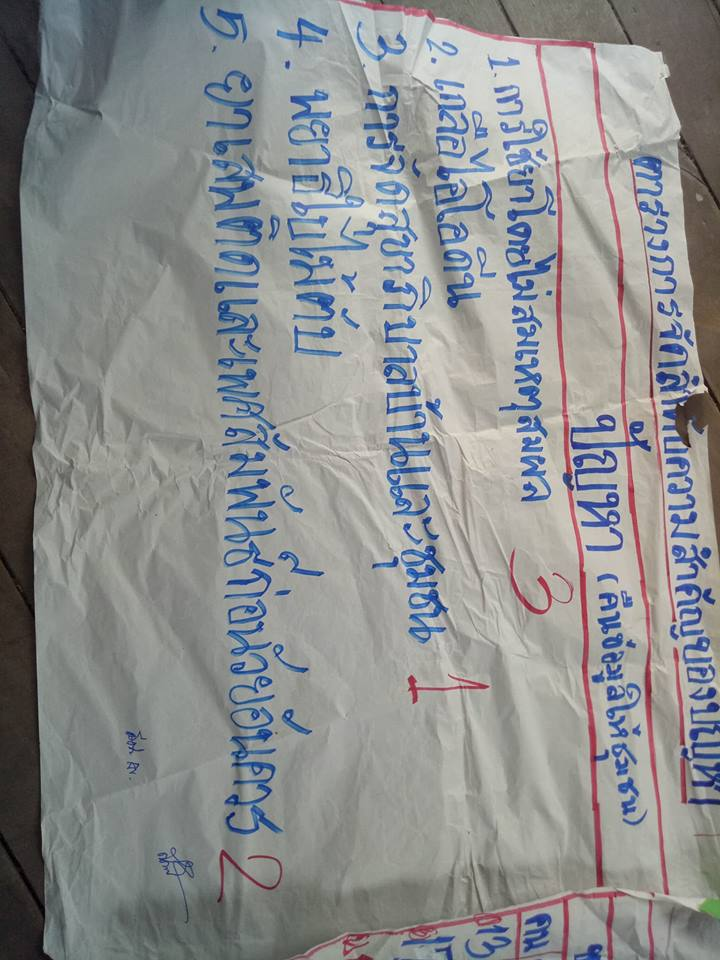 ตารางการจัดลำดับความสำคัญของปัญหา
ปัญหา (คืนข้อมูลให้ชุมชน)
1. การใช้ยาโดยไม่สมเหตุสมผล 3
2. เกลือไอโอดีน
3. การจัดสุขาภิบาลบ้านและชุมชน 1
4. พยาธิใบไม้ตับ
5. ยาเสพติดและเพศสัมพันธ์ก่อนวัยอันควร 2